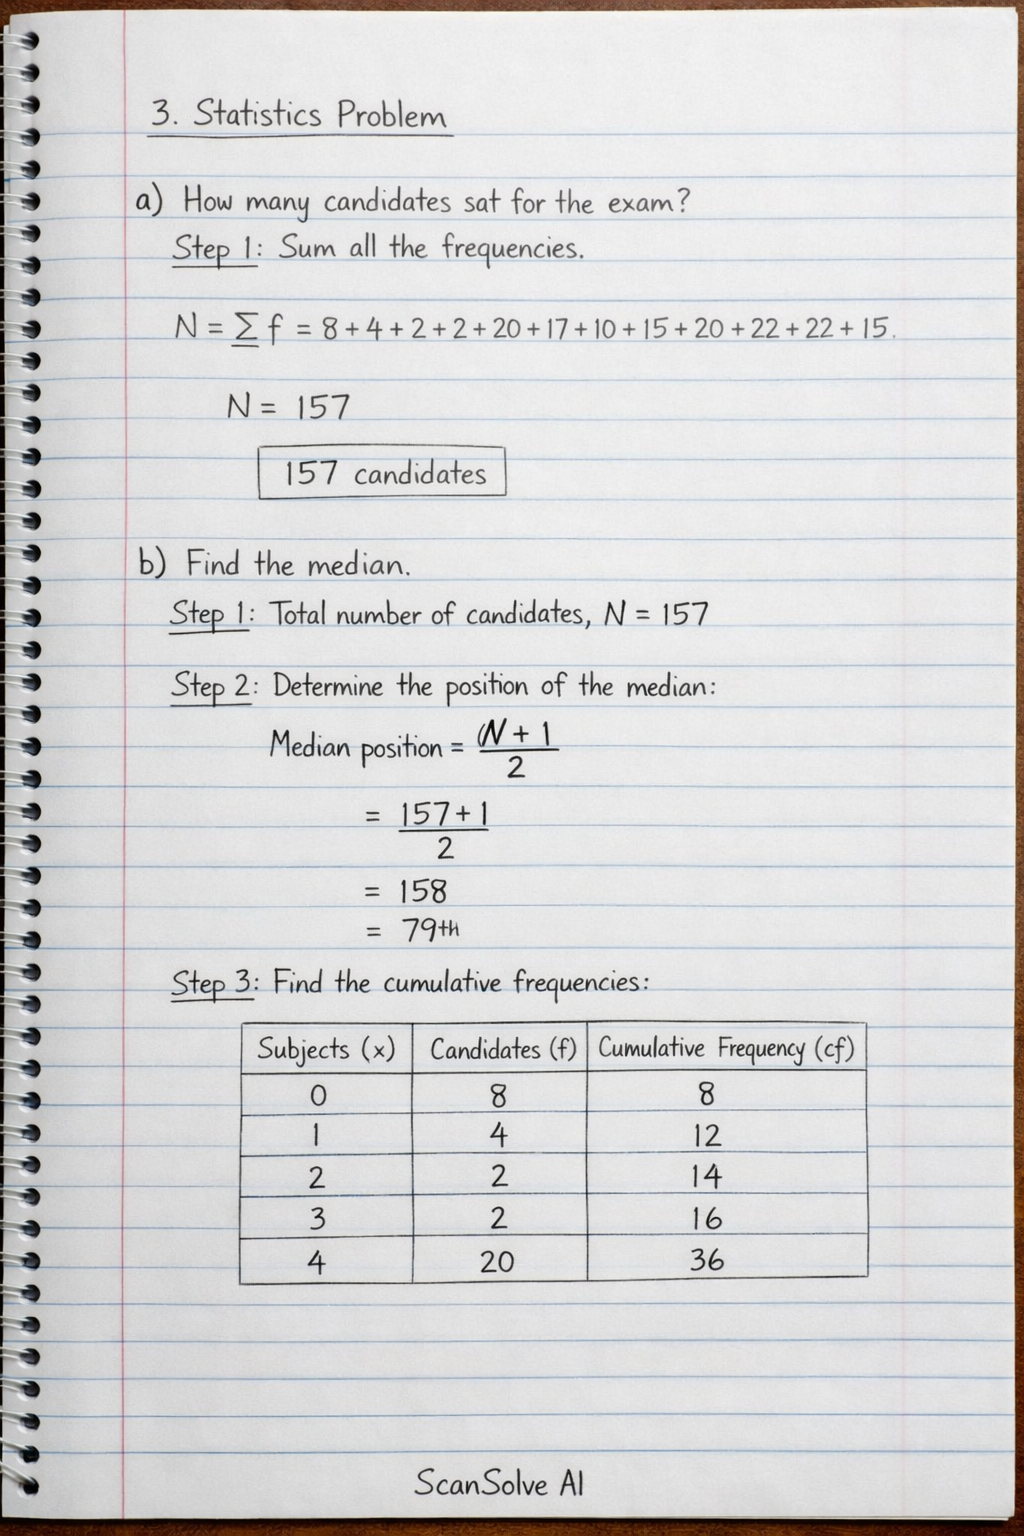 3. Statistics Problem
a) How many candidates sat for the exam?
Step 1: Sum all the frequencies.
N = Σ f = 8 + 4 + 2 + 2 + 20 + 17 + 10 + 15 + 20 + 22 + 22 + 15.
N = 157
157 candidates
b) Find the median.
Step 1: Total number of candidates, N = 157
Step 2: Determine the position of the median:
Median position = (N + 1
2
= 157 + 1
2
= 158
= 79th
Step 3: Find the cumulative frequencies:
Subjects (x) Candidates (f) Cumulative Frequency (cf)
0 8 8
1 4 12
2 2 14
3 2 16
4 20 36
ScanSolve AI